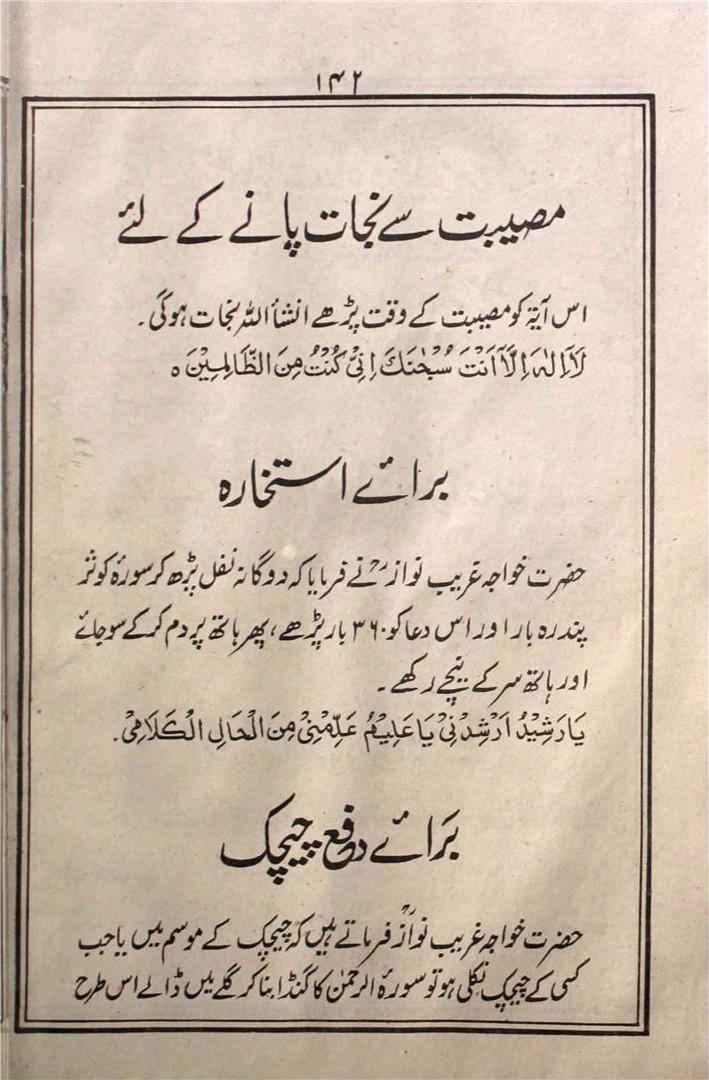 ۱۴۲
مصیبت سے نجات پانے کے لئے
اس آیۃ کو مصیبت کے وقت پڑھے انشأ اللہ نجات ہوگی۔
لَآاِلٰہَ اِلَّآ اَنْتَ سُبْحٰنَكَ اِنِّیْ كُنْتُ مِنَ الظَّالِمِیْنَ ہ
برائے استخارہ
حضرت خواجہ غریب نوازؒ نے فرمایا کہ دوگانہ نفل پڑھ کر سورۂ کوثر
پندرہ بار اور اس دعا کو ۳۶۰ بار پڑھے، پھر ہاتھ پر دم کرکے سو جائے
اور ہاتھ سر کے نیچے رکھے۔
یَا رَشِیْدُ اَرْشِدْنِیْ یَا عَلِیْمُ عَلِّمْنِیْ مِنَ الْحَالِ الْکَلَامِیْ۔
بَرائے دفع چیچک
حضرت خواجہ غریب نوازؒ فرماتے ہیں کہ چیچک کے موسم میں یا جب
کسی کے چیچک نکلی ہو تو سورۂ الرحمٰن کا گنڈا بنا کر گلے میں ڈالے اس طرح